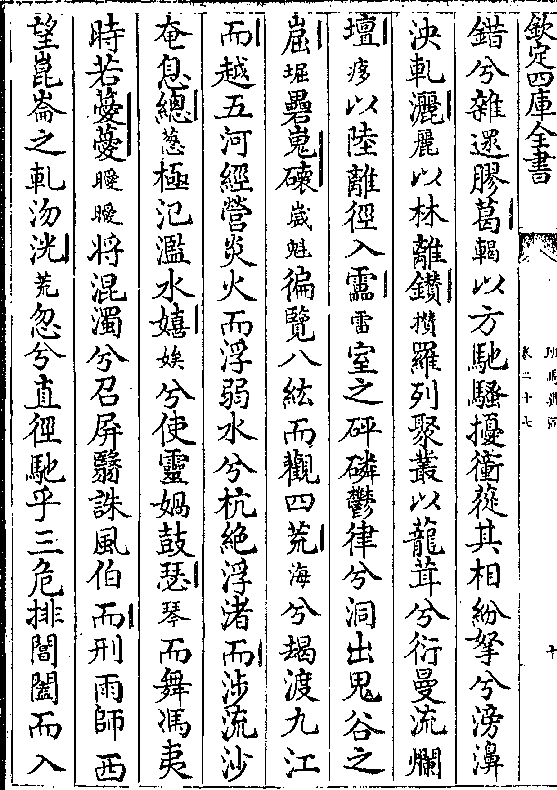 欽定四庫全書
班馬異同
卷二十七
十
錯兮雜遝膠葛輵以方馳騷擾衝蓯其相紛挐兮滂濞
泱軋灑麗以林離鑚攢羅列聚叢以蘢茸兮衍曼流爛
壇痑以陸離徑入靁雷室之砰磷鬱律兮洞出鬼谷之
崫堀礨嵬磙崴魁徧覽八紘而觀四荒海兮朅渡九江
而越五河經營炎火而浮弱水兮杭絶浮渚而涉流沙
奄息總葱極氾濫水嬉娭兮使靈媧鼓瑟琴而舞馮夷
時若薆薆曖曖將混濁兮召屏翳誅風伯而刑雨師西
望崑崙之軋沕洸荒忽兮直徑馳乎三危排閶闔而入